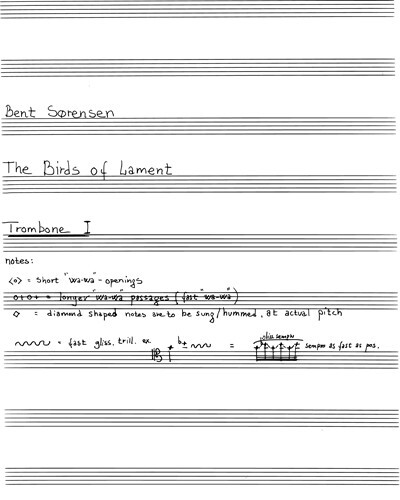 Bent Sørensen
The Birds of Lament
Trombone I
notes:
<o> = short "wa-wa" - openings
o+o+ = longer "wa-wa" passages (fast "wa-wa")
◇ = diamond shaped notes are to be sung/hummed, at actual pitch
= fast gliss. trill. ex. = gliss sempre sempre as fast as pos.